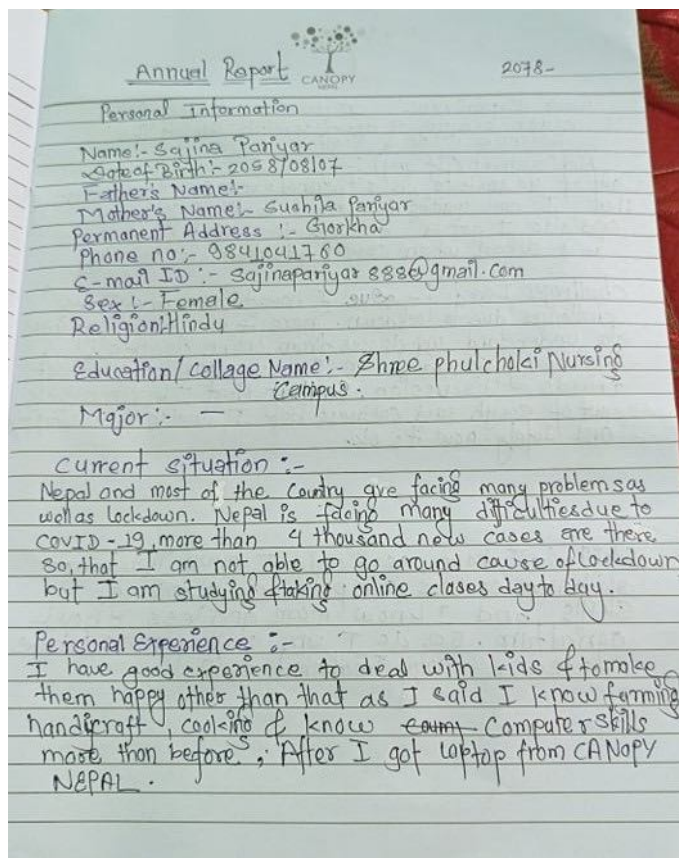 Annual Report
CANOPY
NEPAL
2078-
Personal Information
Name:- Sajina Pariyar
Date of Birth:- 2058/08/07
Father's Name:-
Mother's Name:- Sushila Pariyar
Permanent Address :- Gorkha
Phone no:- 9841041760
E-mail ID :- Sajinapariyar888@gmail.com
Sex :- Female
Religion:Hindu
Education/Collage Name:- Shree phulchoki Nursing
Campus.
Major:- —
Current situation :-
Nepal and most of the Country are facing many problems as
well as lockdown. Nepal is facing many difficulties due to
COVID-19, more than 9 thousand new cases are there
so, that I am not able to go around cause of lockdown
but I am studying & taking online clases day to day.
Personal Experience :-
I have good experience to deal with kids & to make
them happy other than that as I said I know farming
handicraft, cooking & know Computer skills
more than before, After I got laptop from CANOPY
NEPAL.